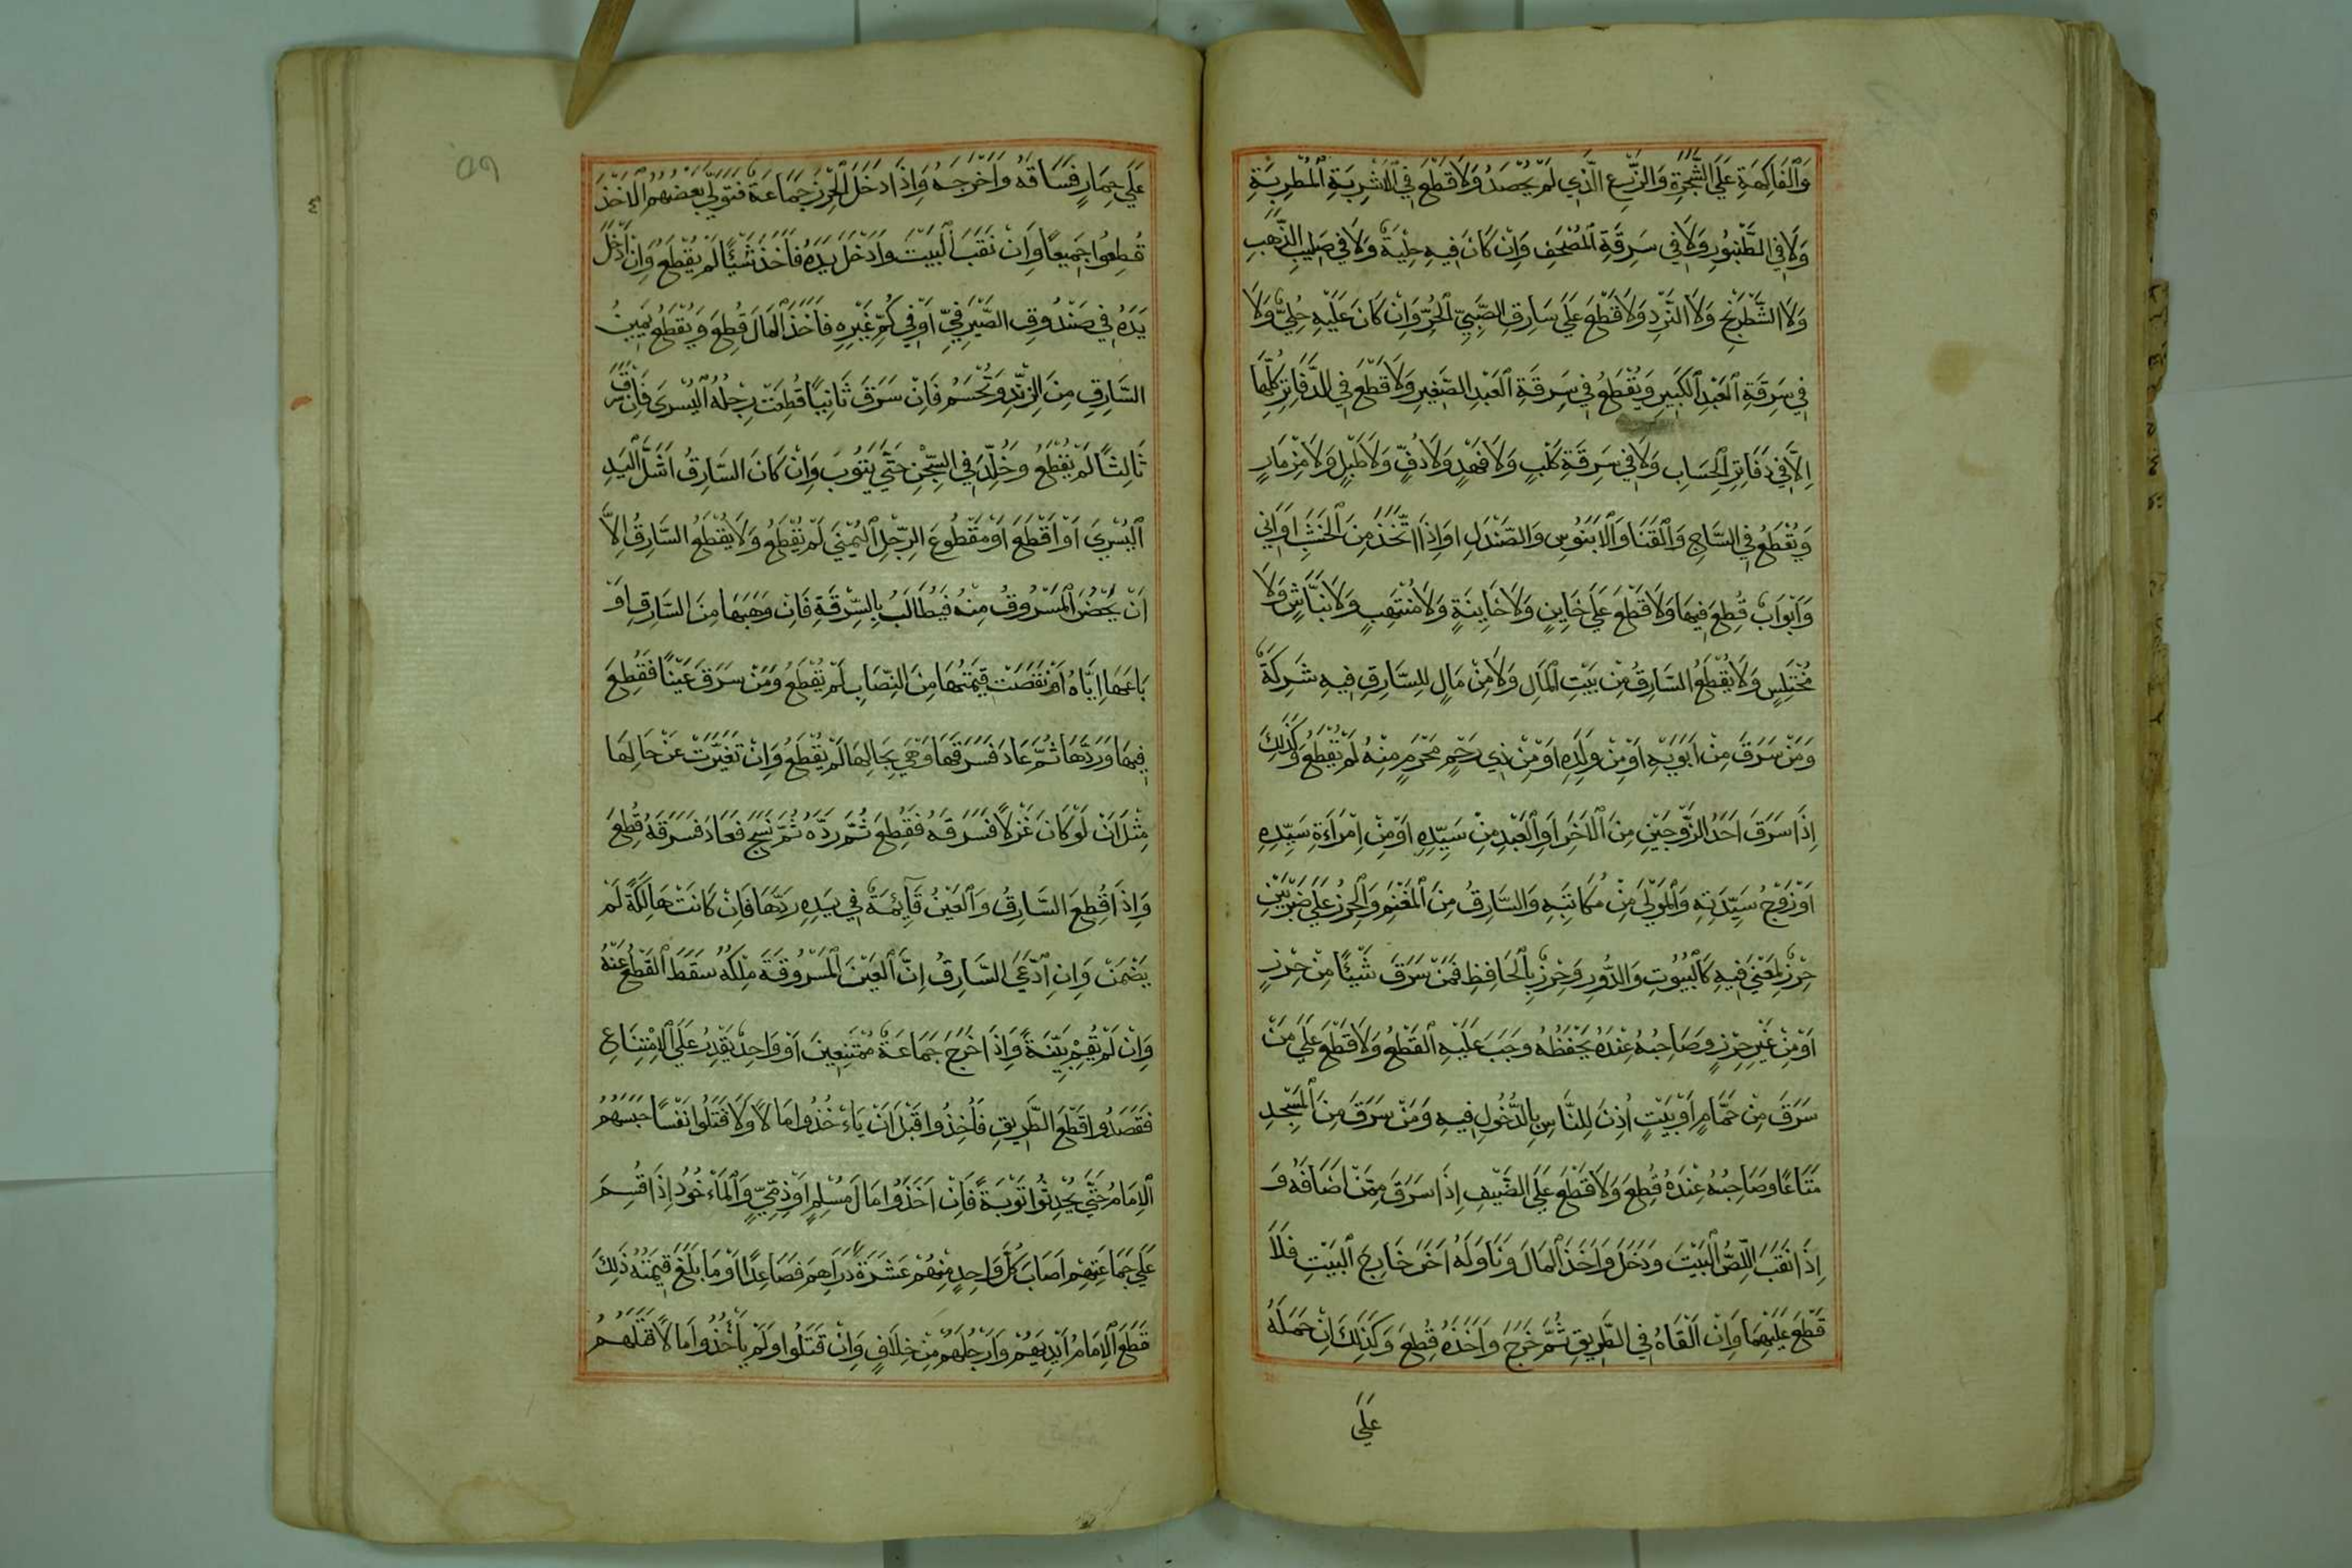 وَالْفَاكِهَةِ عَلَى الشَّجَرَةِ وَالزَّرْعِ الَّذِي لَمْ يُحْصَدُ وَلَا قَطْعَ فِي الْاَشْرِبَةِ الْمُطْرِبَةِ
وَلَا فِي الطَّنْبُورِ وَلَا فِي سَرِقَةِ الْمُصْحَفِ وَاِنْ كَانَ فِيهِ حِلْيَةٌ وَلَا فِي صَلِيبِ الذَّهَبِ
وَلَا الشَّطْرَنْجِ وَلَا النَّرْدِ وَلَا قَطْعَ عَلَى سَارِقِ الصَّبِيِّ الْحُرِّ وَاِنْ كَانَ عَلَيْهِ حُلِيٌّ وَلَا
فِي سَرِقَةِ الْعَبْدِ الْكَبِيرِ وَيُقْطَعُ فِي سَرِقَةِ الْعَبْدِ الصَّغِيرِ وَلَا قَطْعَ فِي الدَّفَاتِرِ كُلِّهَا
اِلَّا فِي دَفَاتِرِ الْحِسَابِ وَلَا فِي سَرِقَةِ كَلْبٍ وَلَا فَهْدٍ وَلَا دُفٍّ وَلَا طَبْلٍ وَلَا مِزْمَارٍ
وَيُقْطَعُ فِي السَّاجِ وَالْقَنَا وَالْاَبَنُوسِ وَالصَّنْدَلِ وَاِذَا اتَّخَذَ مِنَ الْخَشَبِ اَوَانِي
وَاَبْوَابٌ قُطِعَ فِيهَا وَلَا قَطْعَ عَلَى خَايِنٍ وَلَا خَايِنَةٍ وَلَا مُنْتَهِبٍ وَلَا نَبَّاشٍ وَلَا
مُخْتَلِسٍ وَلَا يُقْطَعُ السَّارِقُ مِنْ بَيْتِ الْمَالِ وَلَا مِنْ مَالٍ لِلسَّارِقِ فِيهِ شَرِكَةٌ
وَمَنْ سَرَقَ مِنْ اَبَوَيْهِ اَوْ مِنْ وَلَدِهِ اَوْ مِنْ ذِي رَحِمٍ مَحْرَمٍ مِنْهُ لَمْ يُقْطَعُ وَكَذَلِكَ
اِذَا سَرَقَ اَحَدُ الزَّوْجَيْنِ مِنَ الْاَخَرِ اَوِ الْعَبْدِ مِنْ سَيِّدِهِ اَوْ مِنْ اِمْرَاَةِ سَيِّدِهِ
اَوْ زَوْجِ سَيِّدَتِهِ وَالْمَوْلَى مِنْ مُكَاتَبِهِ وَالسَّارِقُ مِنَ الْمَغْنَمِ وَالْحِرْزُ عَلَى ضَرْبَيْنِ
حِرْزٌ لِمَعْنًى فِيهِ كَالْبُيُوتِ وَالدُّورِ وَحِرْزٌ بِالْحَافِظِ فَمَنْ سَرَقَ شَيْئًا مِنْ حِرْزٍ
اَوْ مِنْ غَيْرِ حِرْزٍ وَصَاحِبُهُ عِنْدَهُ يَحْفَظُهُ وَجَبَ عَلَيْهِ الْقَطْعُ وَلَا قَطْعَ عَلَى مَنْ
سَرَقَ مِنْ حَمَّامٍ اَوْ بَيْتٍ اُذِنَ لِلنَّاسِ بِالدُّخُولِ فِيهِ وَمَنْ سَرَقَ مِنَ الْمَسْجِدِ
مَتَاعًا وَصَاحِبُهُ عِنْدَهُ قُطِعَ وَلَا قَطْعَ عَلَى الضَّيْفِ اِذَا سَرَقَ مِمَّنْ اَضَافَهُ وَ
اِذَا نَقَبَ اللِّصُّ الْبَيْتَ وَدَخَلَ وَاَخَذَ الْمَالَ وَنَاوَلَهُ اَخَرَ خَارِجَ الْبَيْتِ فَلَا
قَطْعَ عَلَيْهِمَا وَاِنْ اَلْقَاهُ فِي الطَّرِيقِ ثُمَّ خَرَجَ وَاَخَذَهُ قُطِعَ وَكَذَلِكَ اِنْ حَمَلَهُ
عَلَى
عَلَى حِمَارٍ فَسَاقَهُ وَاَخْرَجَهُ وَاِذَا دَخَلَ الْحِرْزَ جَمَاعَةٌ فَتَوَلَّى بَعْضُهُمُ الْاَخْذَ
قُطِعُوا جَمِيعًا وَاِنْ نَقَبَ الْبَيْتَ وَاَدْخَلَ يَدَهُ فَاَخَذَ شَيْئًا لَمْ يُقْطَعُ وَاِنْ اَدْخَلَ
يَدَهُ فِي صَنْدُوقِ الصَّيْرَفِيِّ اَوْ فِي كُمِّ غَيْرِهِ فَاَخَذَ الْمَالَ قُطِعَ وَيُقْطَعُ يَمِينُ
السَّارِقِ مِنَ الزَّنْدِ وَتُحْسَمُ فَاِنْ سَرَقَ ثَانِيًا قُطِعَتْ رِجْلُهُ الْيُسْرَى فَاِنْ سَرَقَ
ثَالِثًا لَمْ يُقْطَعُ وَخُلِّدَ فِي السِّجْنِ حَتَّى يَتُوبَ وَاِنْ كَانَ السَّارِقُ اَشَلَّ الْيَدِ
الْيُسْرَى اَوْ اَقْطَعَ اَوْ مَقْطُوعَ الرِّجْلِ الْيُمْنَى لَمْ يُقْطَعُ وَلَا يُقْطَعُ السَّارِقُ اِلَّا
اَنْ يَحْضُرَ الْمَسْرُوقُ مِنْهُ فَيُطَالِبُ بِالسَّرِقَةِ فَاِنْ وَهَبَهَا مِنَ السَّارِقِ اَوْ
بَاعَهَا اِيَّاهُ اَوْ نَقَصَتْ قِيمَتُهَا مِنَ النِّصَابِ لَمْ يُقْطَعُ وَمَنْ سَرَقَ عَيْنًا فَقُطِعَ
فِيهَا وَرَدَّهَا ثُمَّ عَادَ فَسَرَقَهَا وَهِيَ بِحَالِهَا لَمْ يُقْطَعُ وَاِنْ تَغَيَّرَتْ عَنْ حَالِهَا
مِثْلَ اَنْ لَوْ كَانَ غَزْلًا فَسَرَقَهُ فَقُطِعَ ثُمَّ رَدَّهُ ثُمَّ نَسَجَ فَعَادَ فَسَرَقَهُ قُطِعَ
وَاِذَا قُطِعَ السَّارِقُ وَالْعَيْنُ قَائِمَةٌ فِي يَدِهِ رَدَّهَا فَاِنْ كَانَتْ هَالِكَةً لَمْ
يَضْمَنْ وَاِنِ ادَّعَى السَّارِقُ اِنَّ الْعَيْنَ الْمَسْرُوقَةَ مِلْكُهُ سَقَطَ الْقَطْعُ عَنْهُ
وَاِنْ لَمْ يُقِمْ بَيِّنَةً وَاِذَا خَرَجَ جَمَاعَةٌ مُمْتَنِعِينَ اَوْ وَاحِدٌ يَقْدِرُ عَلَى الْاِمْتِنَاعِ
فَقَصَدُوا قَطْعَ الطَّرِيقِ فَاُخِذُوا قَبْلَ اَنْ يَاءْخُذُوا مَالًا وَلَا قَتَلُوا نَفْسًا حَبَسَهُمُ
الْاِمَامُ حَتَّى يُحْدِثُوا تَوْبَةً فَاِنْ اَخَذُوا مَالَ مُسْلِمٍ اَوْ ذِمِّيٍّ وَالْمَاءْخُوذُ اِذَا قُسِمَ
عَلَى جَمَاعَتِهِمْ اَصَابَ كُلَّ وَاحِدٍ مِنْهُمْ عَشَرَةُ دَرَاهِمَ فَصَاعِدًا اَوْ مَا بَلَغَ قِيمَتُهُ ذَلِكَ
قَطَعَ الْاِمَامُ اَيْدِيَهُمْ وَاَرْجُلَهُمْ مِنْ خِلَافٍ وَاِنْ قَتَلُوا وَلَمْ يَأْخُذُوا مَالًا قَتَلَهُمُ